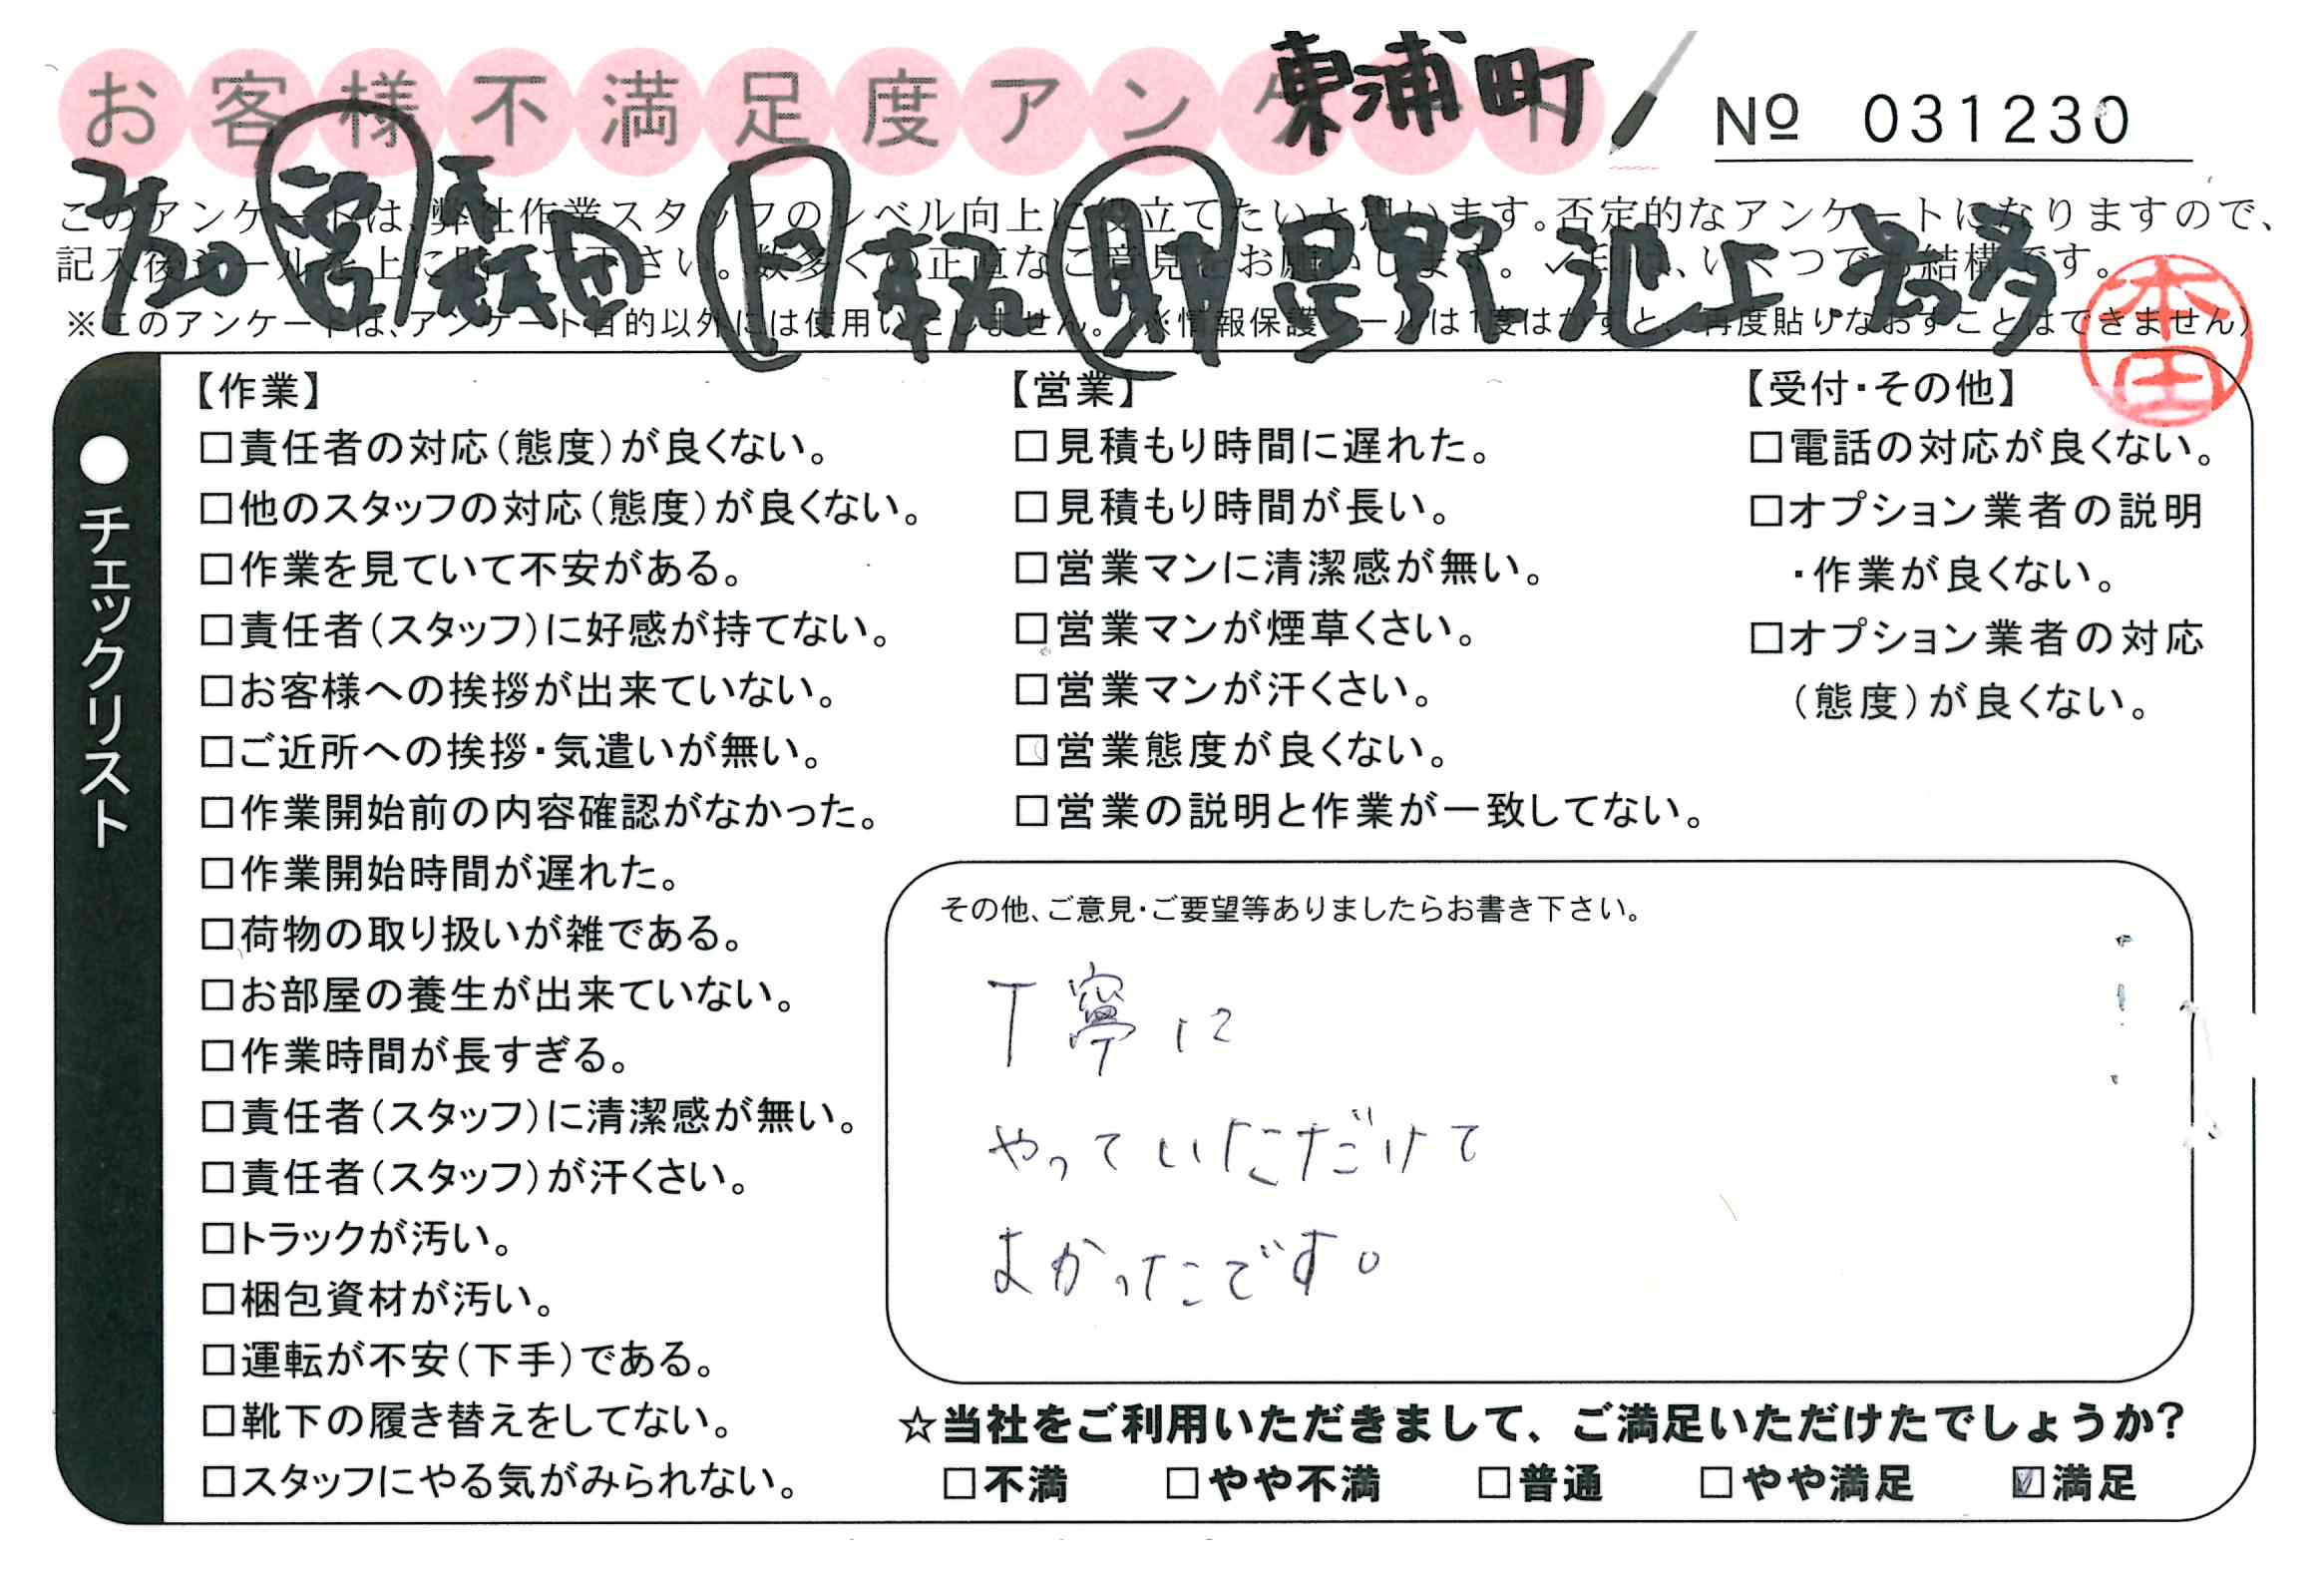 お客様不満足度アンケート
東浦町
No 031230
このアンケートは、弊社作業スタッフのレベル向上に役立てたいと思います。否定的なアンケートになりますので、
記入後シールを上に貼って下さい。数多くの正直なご意見をお願いします。✓印は、いくつでも結構です。
※このアンケートは、アンケート目的以外には使用いたしません。(※情報保護シールは1度はがすと、再度貼りなおすことはできません)
2/20 営 ト 助 星野 池上
本田
●チェックリスト
【作業】
□責任者の対応(態度)が良くない。
□他のスタッフの対応(態度)が良くない。
□作業を見ていて不安がある。
□責任者(スタッフ)に好感が持てない。
□お客様への挨拶が出来ていない。
□ご近所への挨拶・気遣いが無い。
□作業開始前の内容確認がなかった。
□作業開始時間が遅れた。
□荷物の取り扱いが雑である。
□お部屋の養生が出来ていない。
□作業時間が長すぎる。
□責任者(スタッフ)に清潔感が無い。
□責任者(スタッフ)が汗くさい。
□トラックが汚い。
□梱包資材が汚い。
□運転が不安(下手)である。
□靴下の履き替えをしてない。
□スタッフにやる気がみられない。
【営業】
□見積もり時間に遅れた。
□見積もり時間が長い。
□営業マンに清潔感が無い。
□営業マンが煙草くさい。
□営業マンが汗くさい。
□営業態度が良くない。
□営業の説明と作業が一致してない。
【受付・その他】
□電話の対応が良くない。
□オプション業者の説明
・作業が良くない。
□オプション業者の対応
(態度)が良くない。
その他、ご意見・ご要望等ありましたらお書き下さい。
丁寧に
やっていただけて
よかったです。
☆当社をご利用いただきまして、ご満足いただけたでしょうか?
□不満 □やや不満 □普通 □やや満足 ☑満足